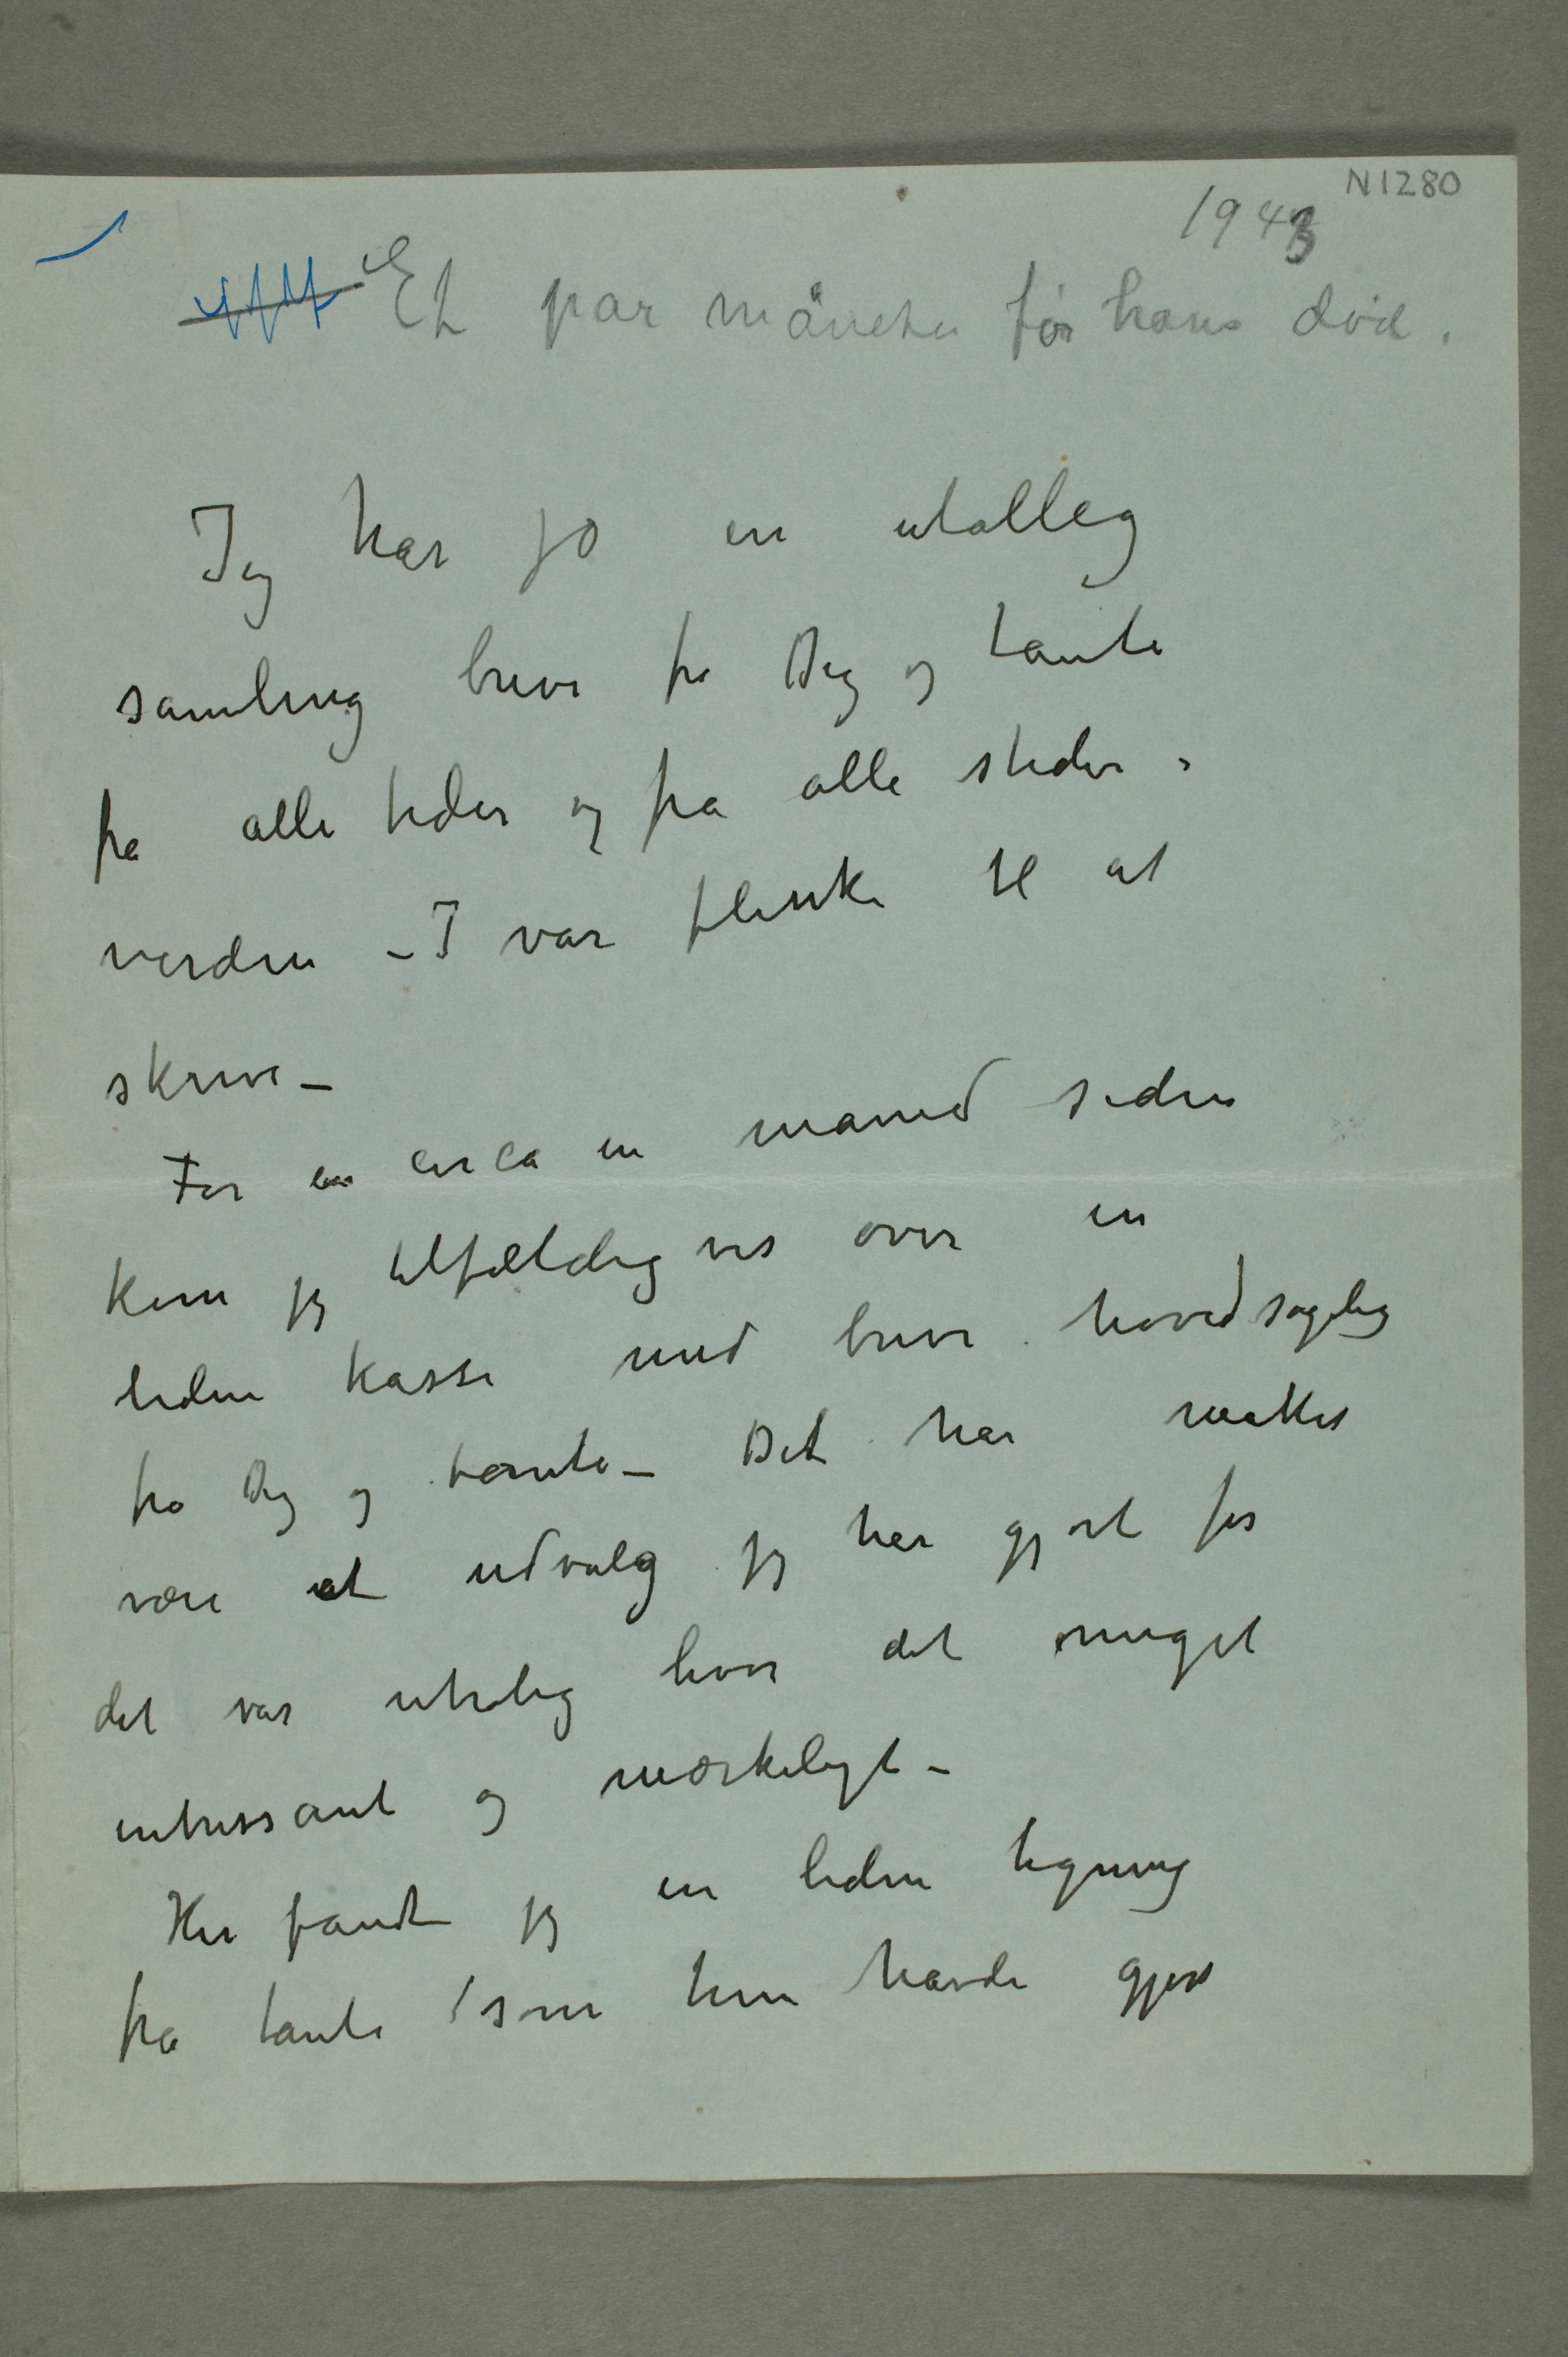 N1280
1943
Et par måneter før hans død.
Jeg har jo en utalleg
samling breve fra Dig og tante
fra alle tider og fra alle steder i
verden – I var flinke til at
skrive –
For en circa en maaned siden
kom jeg tilfældigvis over en
liden kasse med breve hovedsagelig
fra Dig og tante – Det har måttet
være et udvalg jeg har gjort for
det var utrolig hvor det meget
intressant og mærkeligt –
Her fandt jeg en liden tegning
fra tante som hun havde gjort